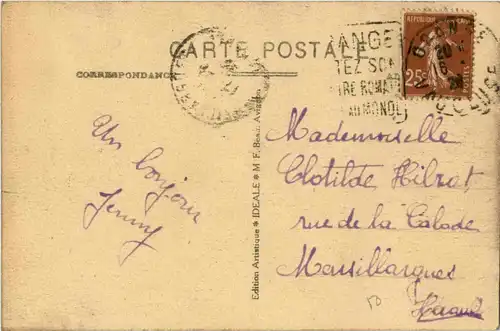 CARTE POSTALE
CORRESPONDANCE
ANGE
TEZ SON
TRE ROMAI
AU MONDE
25c
POSTES
Un bonjour
Jenny
Edition Artistique * IDEALE * M. F. Beau, Avignon
Mademoiselle
Clotilde Hilrat
rue de la Calade
Marsillargues
Herault
50